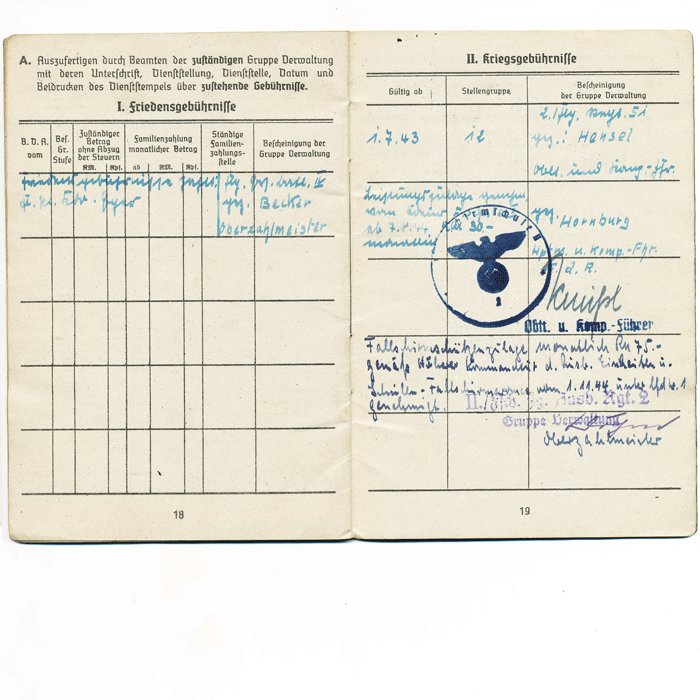 A. Auszufertigen durch Beamten der zuständigen Gruppe Verwaltung
mit deren Unterschrift, Dienststellung, Dienststelle, Datum und
Beidrucken des Dienststempels über zustehende Gebührnisse.
I. Friedensgebührnisse
B. D. A. vom
Bes. Gr. Stufe
Zuständiger Betrag ohne Abzug der Steuern
RM. Rpf.
Familienzahlung monatlicher Betrag
ab RM. Rpf.
Ständige Familien-zahlungs-stelle
Bescheinigung der Gruppe Verwaltung
gebührnisse zahlt:
gez. Becker
Oberzahlmeister
18
II. Kriegsgebührnisse
Gültig ab
Stellengruppe
Bescheinigung
der Gruppe Verwaltung
1.7.43
12
gez: Hensel
Oblt. und Komp.-Fhr.
Leistungszulage
ab 7.8.44 RM 30,-
monatlich
gez.
Hornburg
Hptm. u. Komp.-Fhr.
F. d. R.
Oblt. u. Komp.-Führer
Fallschirmschützenzulage monatlich RM 75.-
gemäß Höherer Kommandeur d. Ausb. Einheiten u.
Schulen - Fallschirmarmee vom 1.11.44 unter lfd. 1
genehmigt.
Ausb. Rgt. 2
Gruppe Verwaltung
Oberzahlmeister
19